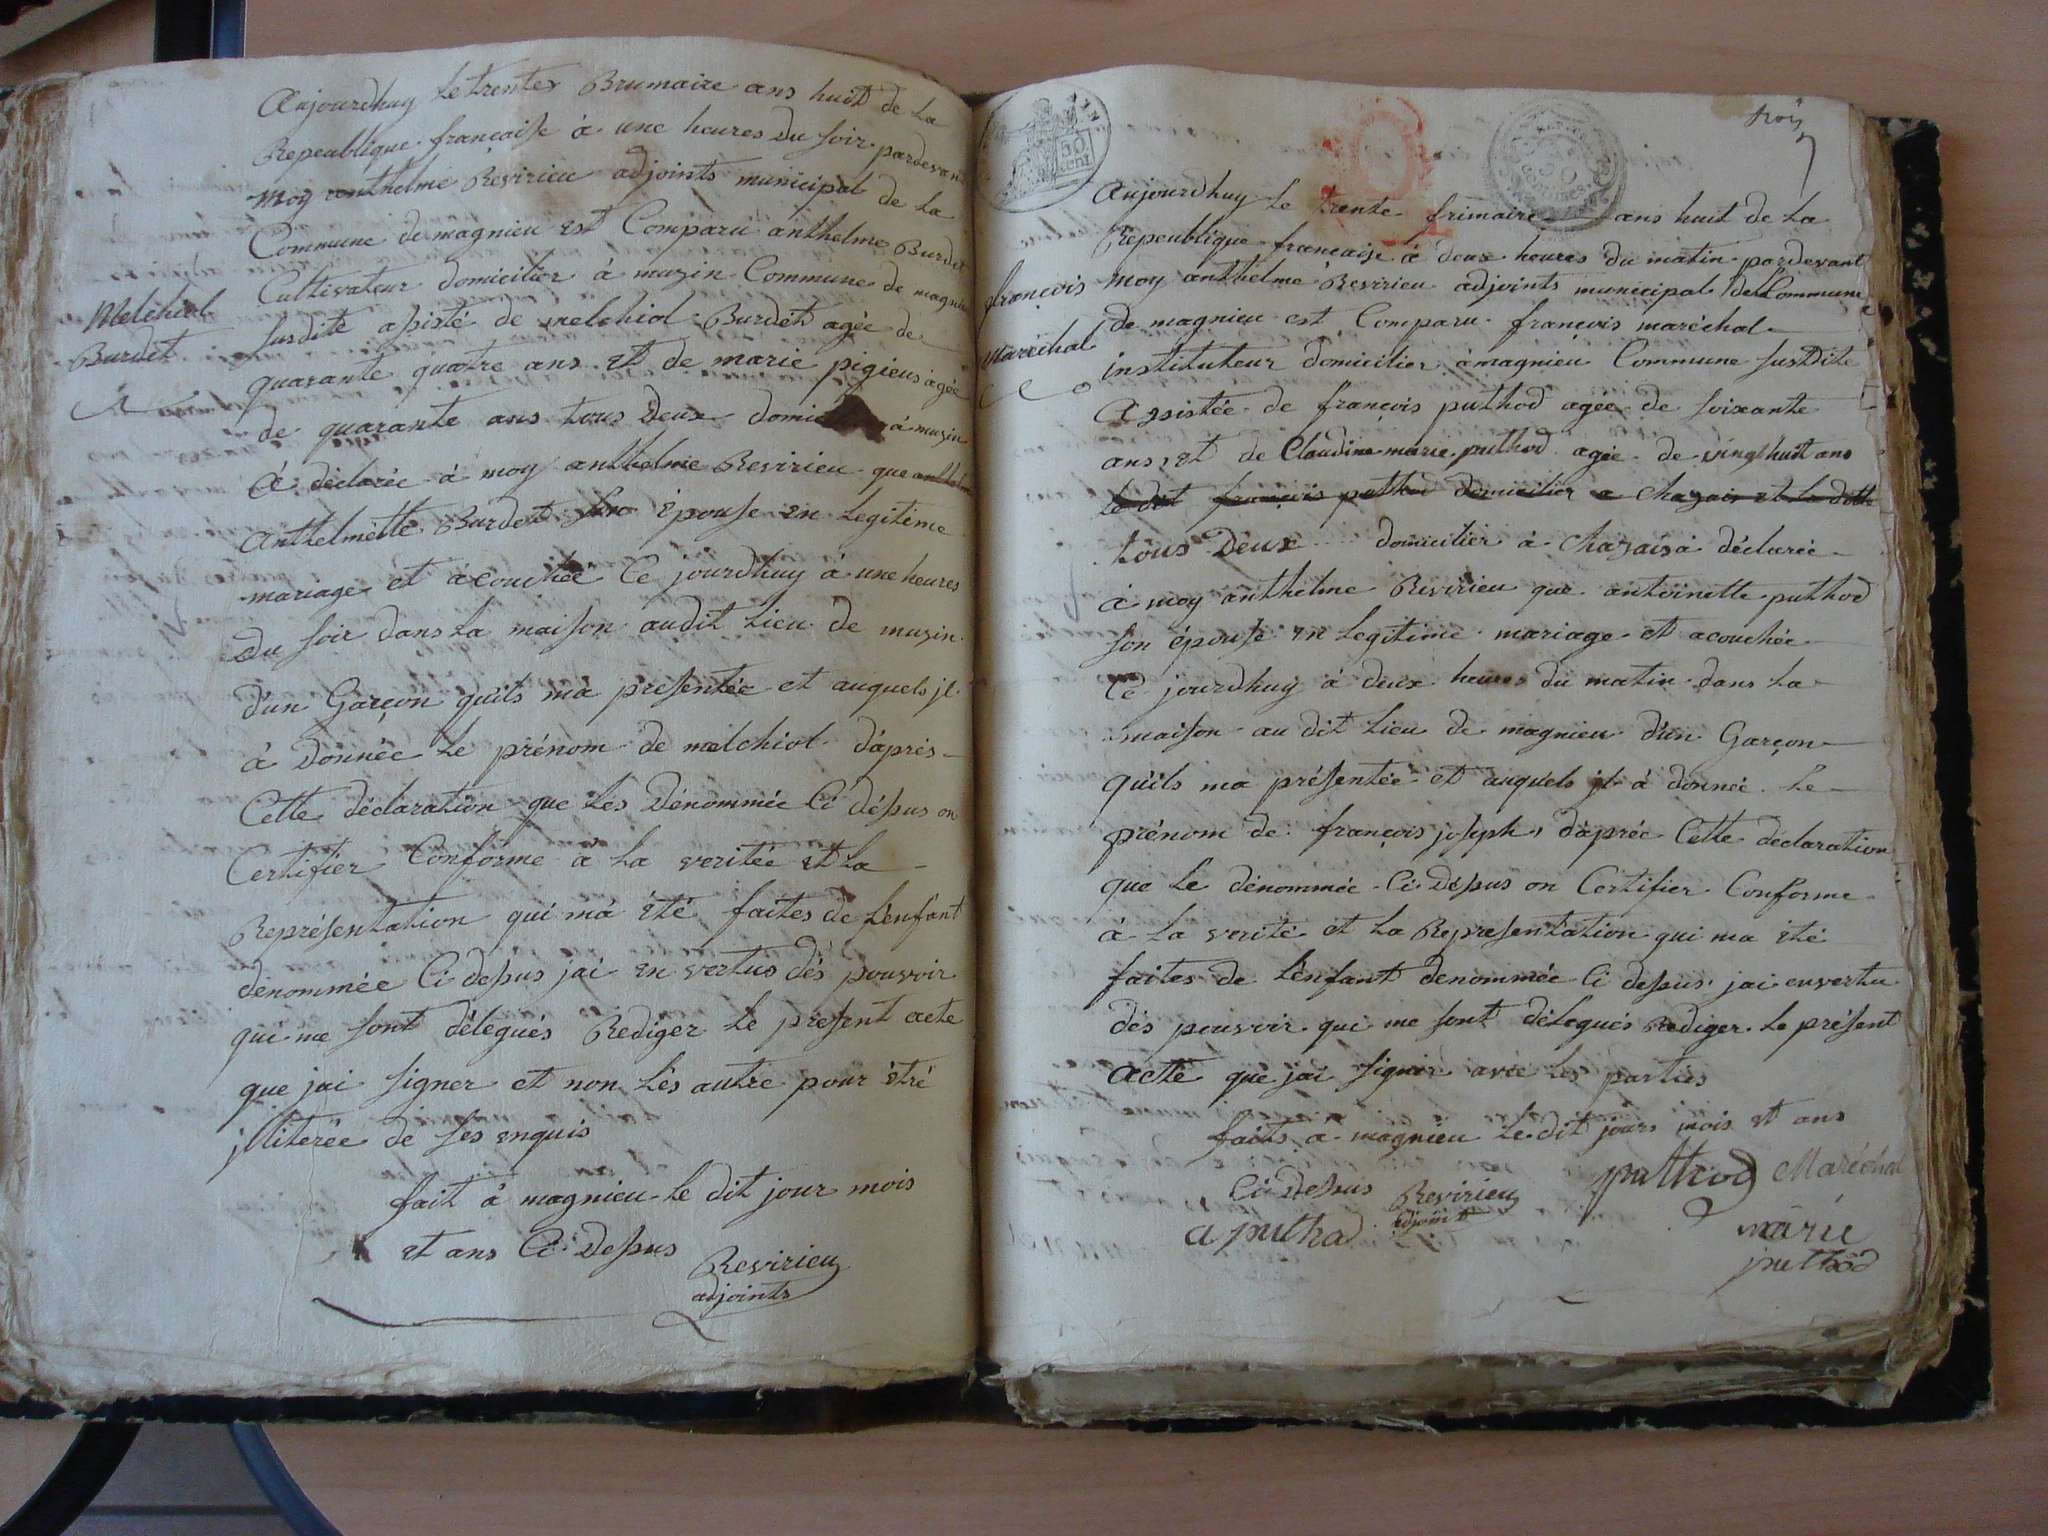 Aujourdhuy le trentes Brumaire ans huit de la
Repeublique francaise à une heures du soir pardevant
moy anthelme Revirieu adjoints municipal de la
Commune de magnieu est Comparu anthelme Burdet
Cultivateur domicilier à muzin Commune de magnieu
Melchiol
Burdet
susdite assisté de melchiol Burdet agée de
quarante quatre ans et de marie pigieus agée
de quarante ans tous deux à muzin
à déclarée à moy anthelme Revirieu que
Anthelmette Burdet épouse en legitime
mariage et acouchée ce jourdhuy à une heures
du soir dans la maison audit lieu de muzin
d'un Garçon quils ma presentée et auquels jl
à donnée le prénom de melchiol daprès
Cette déclaration que les dénommée Ci dessus on
Certifier Conforme à la veritée et la
Représentation qui má été faites de l'enfant
dénommée Ci dessus jai en vertus dés pouvoir
qui me sont délegués Rediger le present acte
que jai signer et non lés autre pour étré
jlliterée de ses enquis
fait à magnieu le dit jour mois
et ans Ci Dessus
Revirieu
adjoints
30
cent
Aujourdhuy le trente frimaire ans huit de la
Repeublique francaise à deux heures du matin pardevant
françois
Maréchal
moy anthelme Revirieu adjoints municipal de la Commune
de magnieu est Comparu françois maréchal
instituteur domicilier à magnieu Commune susdite
Assistée de françois puthod agée de soixante
ans et de Claudine marie puthod agée de vingthuit ans
le dit françois puthod domicilier a Chazais et la ditte
tous Deux domicilier à Chazais à déclarée
à moy anthelme Revirieu que antoinette puthod
son épouse en legitime mariage et acouchée
Ce jourdhuy à deux heures du matin dans la
maison au dit lieu de magnieu d'un Garçon
quils ma présentée et auquels jl à donnée le
prénom de françois joseph, daprée Cette déclaration
que le dénommée Ci Dessus on Certifier Conforme
à la verité et la Representation qui ma été
faites de l'énfant denommée Ci dessus jai en vertu
dés pouvoir qui me sont délegués Rediger le présent
acte que jai signer avec les parties
faits à magnieu le dit jours mois et ans
Ci Dessus
Revirieu
adjoint
puthod Maréchal
a putha
marie
puthod